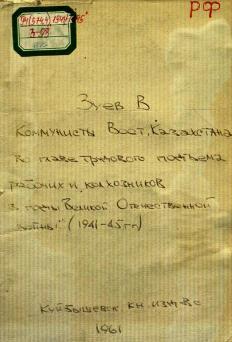 РФ
9(5744)"1941-45"
З-93
Зуев В
Коммунисты Вост. Казахстана
во главе трудового подъема
рабочих и колхозников
в годы Великой Отечественной
войны" (1941-45 гг)
Куйбышевск. кн. изд-во
1961